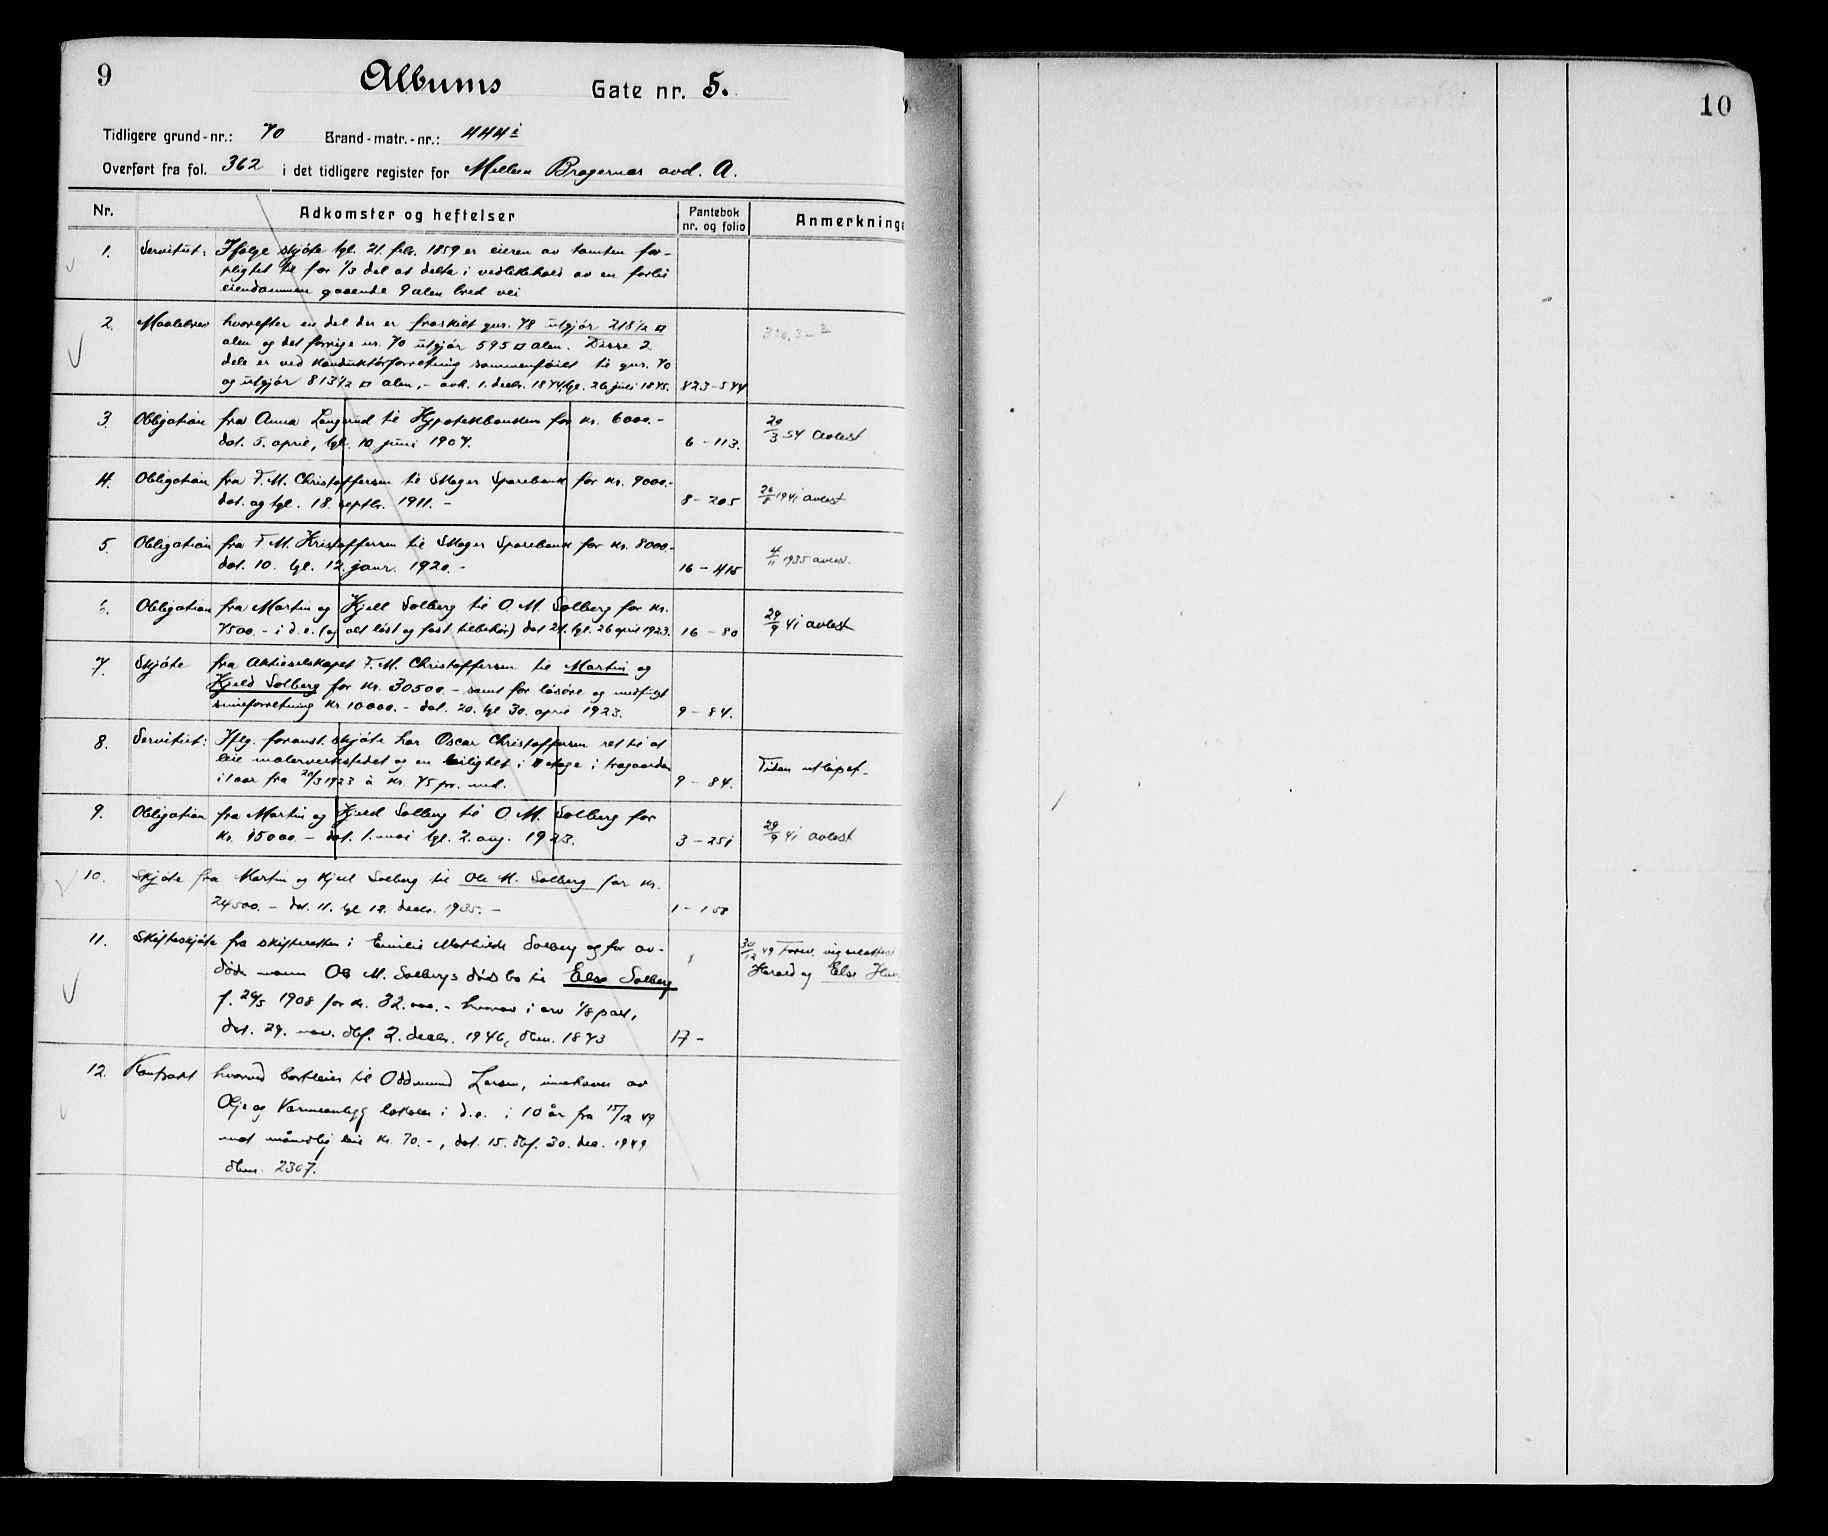 9
Albums Gate nr. 5.
Tidligere grund-nr.: 70 Brand-matr.-nr.: 444i
Overført fra fol. 362 i det tidligere register for Mellem Bragernes avd. A.
Nr. Adkomster og heftelser Pantebok nr. og folio Anmerkninge
1. Servitut: Ifølge skjøte tgl. 21. febr. 1859 er eieren av tomten for-
pligtet til for 1/3 del at delta i vedlikehold av en forbi
eiendommen gaaende 9 alen bred vei
2. Maalebrev hvorefter en del der er fraskilt gnr. 78 utgjør 218 1/2 □
alen og det forrige nr. 70 utgjør 595 □ alen. Disse 2
dele er ved konduktørforretning sammenføiet til gnr. 70
og utgjør 813 1/2 □ alen, - avh. 1. decbr. 1874, tgl. 26 juli 1875. 823-544
3. Obligation fra Anna Langerud til Hypotekbanken for kr. 6000.-
dat. 5. april, tgl. 10. juni 1907. 6 - 113. 29/3 54 avlest
4. Obligation fra F. M. Christoffersen til Skoger Sparebank for kr. 9000.-
dat. og tgl. 18. septbr. 1911. - 8 - 205 1941 avlest
5. Obligation fra F. M. Kristoffersen til Skoger Sparebank for kr. 8000.-
dat. 10. tgl. 12. januar. 1920. - 16 - 415 4/11 1935 avlest.
6. Obligation fra Martin og Kjell Solberg til O. M. Solberg for kr.
7500.- i d.e. (og alt løst og fast tilbehør) dat 24. tgl. 26 april 1923. 16 - 80 29/9 41 avlest
7. Skjøte fra Aktieselskapet F. M. Christoffersen til Martin og
Kjeld Solberg for kr. 30500.- samt for løsøre og
kr. 10000.- dat. 20. tgl 30. april 1923. 9 - 84.
8. Servitut: Iflg. foranst. skjøte har Oscar Christoffersen ret til at
leie malerverkstedet og en leilighet i II etage i
i 1 aar fra 20/3 1923 à kr. 75 pr. md. 9 - 84. Tiden utløpet.-
9. Obligation fra Martin og Kjeld Solberg til O. M. Solberg for
kr. 15000.- dat. 1. mai tgl. 2. aug. 1923. 3 - 251 29/9 41 avlest
10. Skjøte fra Martin og Kjell Solberg til Ole M. Solberg for kr.
24500.- dat. 11. tgl 12. decbr. 1935.- 1 - 158
11. Skifteskjøte fra skifteretten i Emilie Mathilde Solberg og før av-
døde mann Ole M. Solbergs dødsbo til Else Solberg 30/12 49
f. 1908 for kr. 32.000.- hvorav i arv 1/8 part, Harald og Else
dat. 29. nov. dbf. 2. decbr. 1946, dbnr. 1873 17 -
12. Kontrakt hvorved bortleies til Oddmund Larsen, innehaver av
Olje og Varmeanlegg lokaler i d.e. i 10 år fra 15/12 49
mot månedlig leie kr. 70.-, dat. 15. dbf. 30. des. 1949
dbnr. 2307.
10